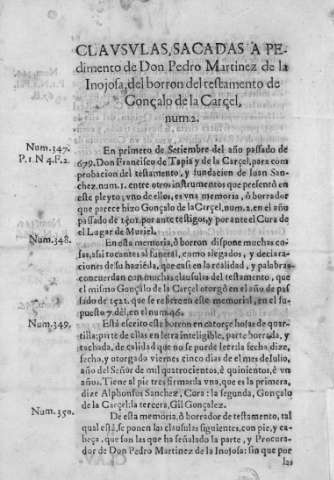 CLAVSVLAS, SACADAS A PE-
dimento de Don Pedro Martinez de la
Inojosa, del borron del testamento de
Gonçalo de la Carçel,
num 2.
Num. 347.
P. 1. N 4. F. 2.
En primero de Setiembre del año passado de
679. Don Francisco de Tapia y de la Carçel, para com
probacion del testamento, y fundacion de Iuan San-
chez. num. 1. entre otros instrumentos que presentò en
este pleyto, vno de ellos, es vna memoria, ò borrador
que parece hizo Gonçalo de la Carçel, num. 2. en el año
passado de 1501. por ante testigos, y por ante el Cura de
el Lugar de Muriel.
Num. 348.
En esta memoria, ò borron dispone muchas co-
sas, assi tocantes al funeral, como alegados, y declara
ciones de su haziēda, que casi en la realidad, y palabras
concuerdan con muchas clausulas del testamento, que
el mismo Gonçalo de la Carçel otorgò en el año de pas
sado de 1521. que se refieren este memorial, en el su-
puesto 7. dèl, en el num. 96.
Num. 349.
Està escrito este borron en catorçe hojas de quar-
tilla; parte de ellas en letra inteligible, parte borrada, y
tachada, de calidad que no se puede leer: la fecha dize,
fecho, y otorgado viernes cinco dias de el mes de Iulio,
año del Señor de mil quatrocientos, è quinientos, è vn
años. Tiene al pie tres firmas: la vna, que es la primera,
dize Alphonsus Sanchez, Cura: la segunda, Gonçalo
de la Carçel: la tercera, Gil Gonçalez.
Num. 350.
De esta memoria, ò borrador de testamento, tal
qual està, se ponen las clausulas siguientes, con pie, y ca-
beça, que son las que ha señalado la parte, y Procura-
dor de Don Pedro Martinez de la Inojosa: sin que por
las